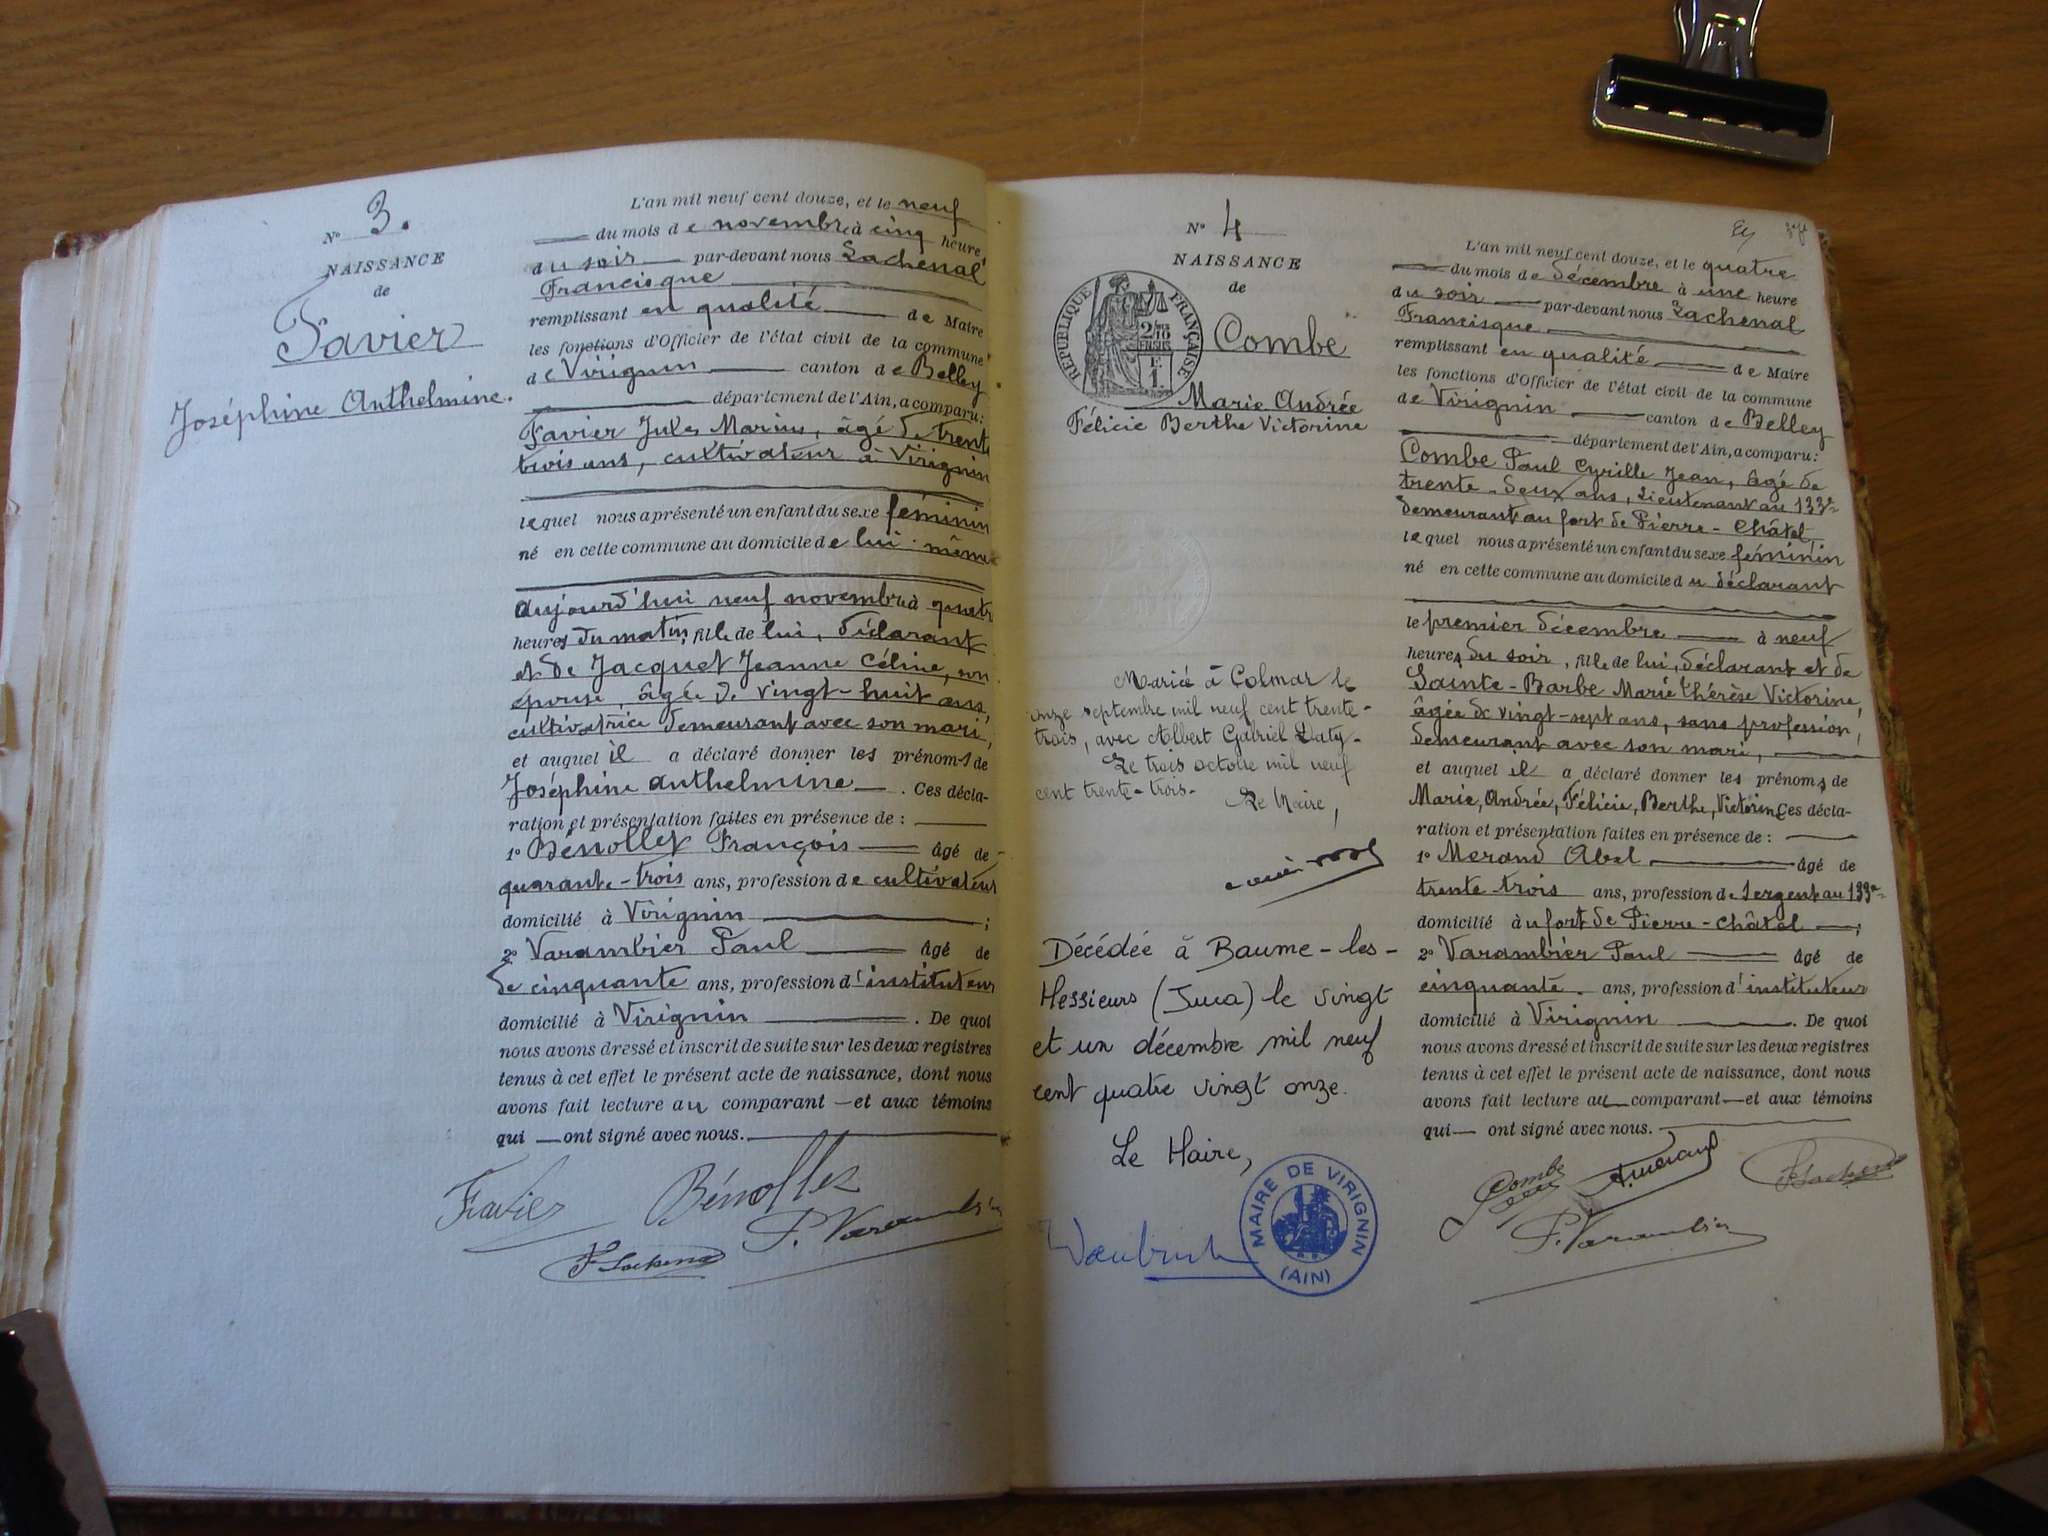 N° 3.
NAISSANCE
de
Favier
Joséphine Anthelmine.
L'an mil neuf cent douze, et le neuf
du mois de novembre à cinq heure
du soir par-devant nous Lachenal
Francisque
remplissant en qualité de Maire
les fonctions d'Officier de l'état civil de la commune
de Virignin canton de Belley
département de l'Ain, a comparu:
Favier Jules Marius, âgé de trent
trois ans, cultivateur à Virignin
lequel nous a présenté un enfant du sexe féminin
né en cette commune au domicile de lui-même
aujourd'hui neuf novembre à quatr
heures du matin, fille de lui, déclarant
et de Jacquet Jeanne Céline, son
épouse, âgée de vingt-huit ans,
cultivatrice demeurant avec son mari,
et auquel il a déclaré donner les prénoms de
Joséphine Anthelmine. Ces décla-
ration et présentation faites en présence de :
1° Bénollet François âgé de
quarante-trois ans, profession de cultivateur
domicilié à Virignin ;
2° Varambier Paul âgé de
de cinquante ans, profession d'instituteur
domicilié à Virignin . De quoi
nous avons dressé et inscrit de suite sur les deux registres
tenus à cet effet le présent acte de naissance, dont nous
avons fait lecture au comparant et aux témoins
qui ont signé avec nous.
Favier Bénollet
P. Varambier
F Lachenal
N° 4
NAISSANCE
de
RÉPUBLIQUE FRANÇAISE
2/10
EN SUS
1 F.
Combe
Marie Andrée
Félicie Berthe Victorine
Mariée à Colmar le
onze septembre mil neuf cent trente-
trois, avec Albert Gabriel Daty.
Le trois octobre mil neuf
cent trente-trois.
Le Maire,
Décédée à Baume-les-
Messieurs (Jura) le vingt
et un décembre mil neuf
cent quatre vingt onze.
Le Maire,
MAIRE DE VIRIGNIN
(AIN)
L'an mil neuf cent douze, et le quatre
du mois de décembre à une heure
du soir par-devant nous Lachenal
Francisque
remplissant en qualité de Maire
les fonctions d'Officier de l'état civil de la commune
de Virignin canton de Belley
département de l'Ain, a comparu:
Combe Paul Cyrille Jean, âgé de
trente-deux ans, Lieutenant au 133e
demeurant au fort de Pierre-Châtel,
lequel nous a présenté un enfant du sexe féminin
né en cette commune au domicile du déclarant
le premier décembre à neuf
heures du soir, fille de lui, déclarant et de
Sainte-Barbe Marie Thérèse Victorine,
âgée de vingt-sept ans, sans profession,
demeurant avec son mari,
et auquel il a déclaré donner les prénoms de
Marie, Andrée, Félicie, Berthe, Victorine Ces décla-
ration et présentation faites en présence de :
1° Merand Abel âgé de
trente-trois ans, profession de sergent au 133e
domicilié au fort de Pierre-Châtel ;
2° Varambier Paul âgé de
cinquante ans, profession d'instituteur
domicilié à Virignin . De quoi
nous avons dressé et inscrit de suite sur les deux registres
tenus à cet effet le présent acte de naissance, dont nous
avons fait lecture au comparant et aux témoins
qui ont signé avec nous.
Combe A. Merand F Lachenal
P. Varambier